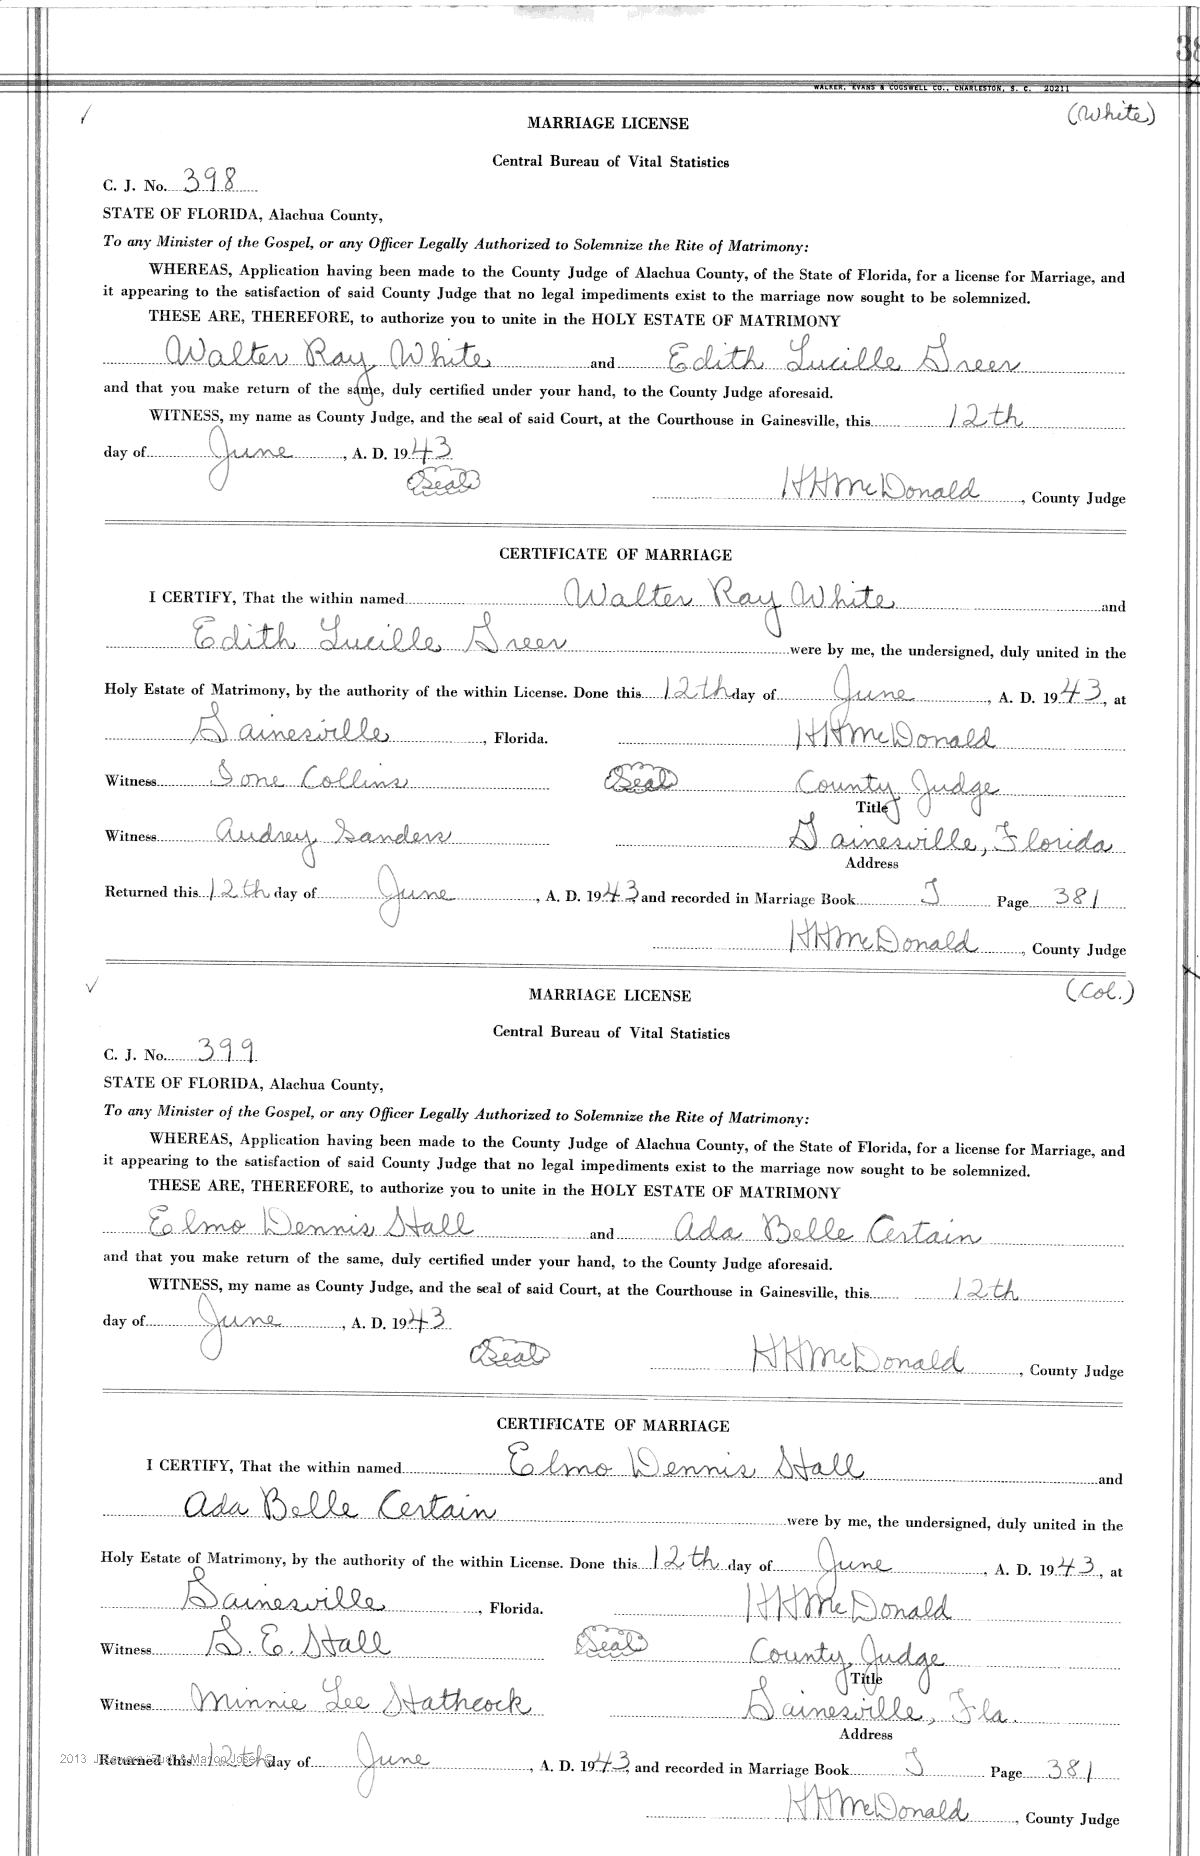 38
WALKER, EVANS & COGSWELL CO., CHARLESTON, S. C. 20211
(White)
MARRIAGE LICENSE
Central Bureau of Vital Statistics
C. J. No. 398
STATE OF FLORIDA, Alachua County,
To any Minister of the Gospel, or any Officer Legally Authorized to Solemnize the Rite of Matrimony:
WHEREAS, Application having been made to the County Judge of Alachua County, of the State of Florida, for a license for Marriage, and
it appearing to the satisfaction of said County Judge that no legal impediments exist to the marriage now sought to be solemnized.
THESE ARE, THEREFORE, to authorize you to unite in the HOLY ESTATE OF MATRIMONY
Walter Ray White and Edith Lucille Greer
and that you make return of the same, duly certified under your hand, to the County Judge aforesaid.
WITNESS, my name as County Judge, and the seal of said Court, at the Courthouse in Gainesville, this 12th
day of June, A. D. 1943
Seal
HHMcDonald, County Judge
CERTIFICATE OF MARRIAGE
I CERTIFY, That the within named Walter Ray White and
Edith Lucille Greer were by me, the undersigned, duly united in the
Holy Estate of Matrimony, by the authority of the within License. Done this 12th day of June, A. D. 1943, at
Gainesville, Florida. HHMcDonald
Witness Ione Collins Seal County Judge
Title
Witness Audrey Sanders Gainesville, Florida
Address
Returned this 12th day of June, A. D. 1943 and recorded in Marriage Book J Page 381
HHMcDonald, County Judge
(Col.)
MARRIAGE LICENSE
Central Bureau of Vital Statistics
C. J. No. 399
STATE OF FLORIDA, Alachua County,
To any Minister of the Gospel, or any Officer Legally Authorized to Solemnize the Rite of Matrimony:
WHEREAS, Application having been made to the County Judge of Alachua County, of the State of Florida, for a license for Marriage, and
it appearing to the satisfaction of said County Judge that no legal impediments exist to the marriage now sought to be solemnized.
THESE ARE, THEREFORE, to authorize you to unite in the HOLY ESTATE OF MATRIMONY
Elmo Dennis Hall and Ada Belle Certain
and that you make return of the same, duly certified under your hand, to the County Judge aforesaid.
WITNESS, my name as County Judge, and the seal of said Court, at the Courthouse in Gainesville, this 12th
day of June, A. D. 1943
Seal
HHMcDonald, County Judge
CERTIFICATE OF MARRIAGE
I CERTIFY, That the within named Elmo Dennis Hall and
Ada Belle Certain were by me, the undersigned, duly united in the
Holy Estate of Matrimony, by the authority of the within License. Done this 12th day of June, A. D. 1943, at
Gainesville, Florida. HHMcDonald
Witness G. E. Hall Seal County Judge
Title
Witness Minnie Lee Hathcock Gainesville, Fla.
Address
2013
Returned this 12th day of June, A. D. 1943 and recorded in Marriage Book J Page 381
HHMcDonald, County Judge